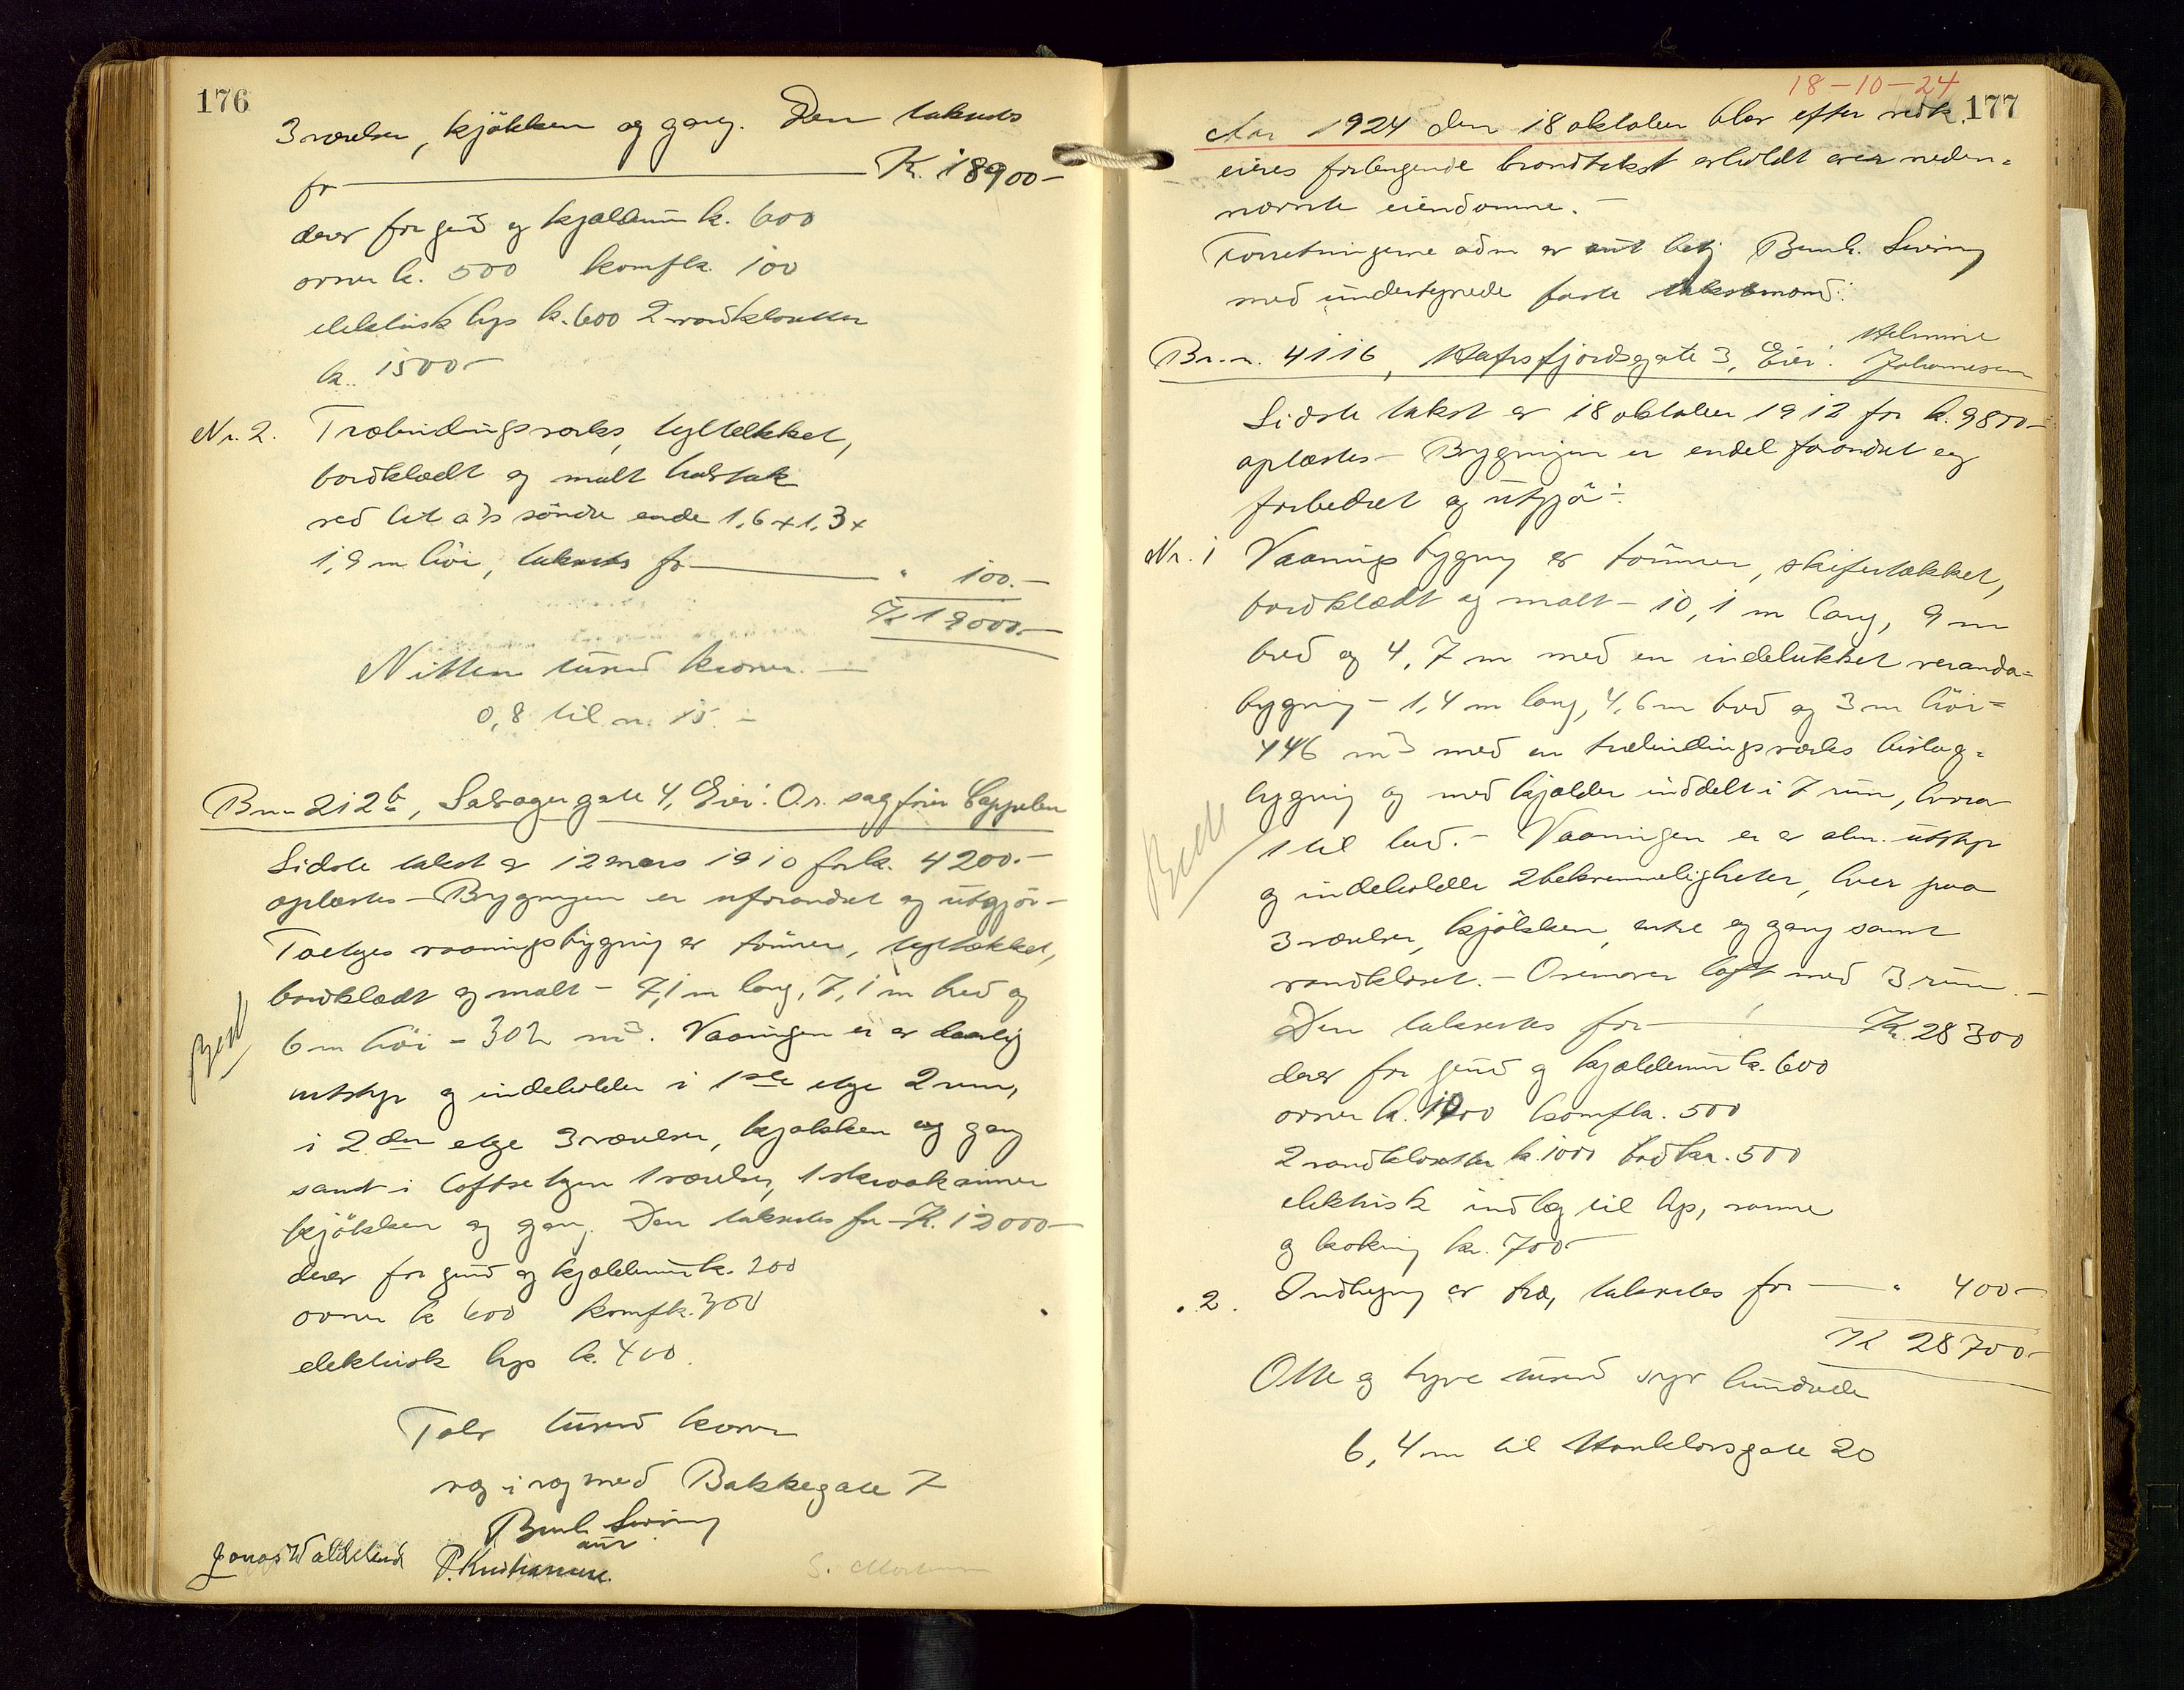 176
3 værelser, kjøkken og gang. Den takseres
for K. 18900-
derav for grund og kjælderrum k. 600
ovner k. 500 komfk. 100
elektrisk lys k. 600 2 vandklosetter
k. 1500-
Nr. 2. Træbindingsverks, tegltækket,
bordklædt og malt halvtak
ved hit a/s söndre ende 1,6 x 1,3 x
1,9 m höi, takseres for " 100.-
K 19000.-
Nitten tusend kroner.-
0,8 til nr. 15.-
Br.nr 212b, Salvagergate 4, Eier: O.r. sagfører Cappelen
Sidste takst er 12 mars 1910 for k. 4200.-
oplæstes - Bygningen er uforandret og utgjør -
Toetages vaaningsbygning av tømmer, tegltækket,
bordklædt og malt - 7,1 m lang, 7,1 m bred og
6 m høi = 302 m3. Vaaningen er av daarlig
utstyr og indeholder i 1ste etage 2 rum,
i 2den etage 3 værelser, kjøkken og gang
samt i loftsetagen 1 værelse, 1 skraakammer
kjökken og gang. Den takseres for K. 12000-
derav for grund og kjælderrum k. 200
ovner k 600 komfk. 300
elektrisk lys k. 400.
Tolv tusend kroner
væg i væg med Bakkegate 7
Bernh. Severing
aut
Jonas W P. Kristiansen
S.
Bet
18-10-24
177
Aar 1924 den 18 oktober blev efter vedk.
eieres forlangende brandtakst avholdt over neden=
nævnte eiendomme.-
Forretningerne adm av aut betj Bernh. Severing
med undertegnede faste takstmænd:
Br.nr. 4116, Hafrsfjordsgate 3, Eier: Helmine
Johannesen
Sidste takst er 18 oktober 1912 for k. 9800-
oplæstes - Bygningen er endel forandret og
forbedret og utgjør:
Nr. 1 Vaaningsbygning av tømmer, skifertækket,
bordklædt og malt - 10,1 m lang, 9 m
bred og 4,7 m med en indelukket veranda=
bygning - 1,4 m lang, 4,6 m bred og 3 m høi=
446 m3 med en træbindingsverks bislag=
bygning og med kjælder inddelt i 7 rum, hvorav
1 til bad.- Vaaningen er av alm. utstyr
og indeholder 2 bekvemmeligheter, hver paa
3 værelser, kjøkken, entre og gang samt
vandkloset.- Ovenover loft med 3 rum.-
Den takseres for K. 28300
derav for grund og kjælderrum k. 600
ovner k. 1000 komfk. 500
2 vandklosetter k. 1000 bad kr. 500
elektrisk indlæg til lys, varme
og kokning kr. 700-
" 2. Indhegning av træ, takseres for " 400-
K 28700-
Otte og tyve tusend syv hundrede
6,4 m til Haukelivsgate 20